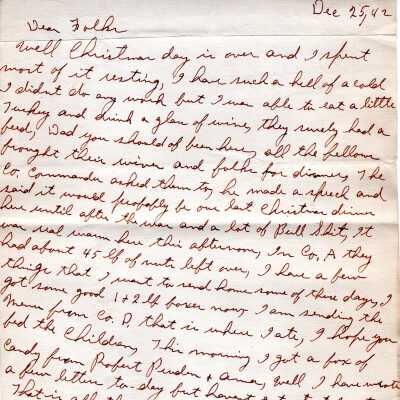 Dec 25, 42
Dear Folks
Well Christmas day is over and I spent
most of it resting, I have such a hell of a cold
I didn't do any work but I was able to eat a little
Turkey and drink a glass of wine, they surely had a
feed, Dad you should of been here, all the fellows
brought their wives and folks for dinner, The
Co. Commander asked them to, he made a speech and
said it would probably be our last Christmas dinner
here until after the war and a lot of Bull Shit, It
was real warm here this afternoon, In Co, A they
had about 45 lb of nuts left over, I have a few
things that I want to send home some of these days, I
got some good 1 + 2 lb boxes now, I am sending the
Menu from Co. A, that is where I ate, I hope you
fed the Children, This morning I got a box of
Candy from Robert + Anna, Well I have wrote
a few letters to-day but havent
That is all